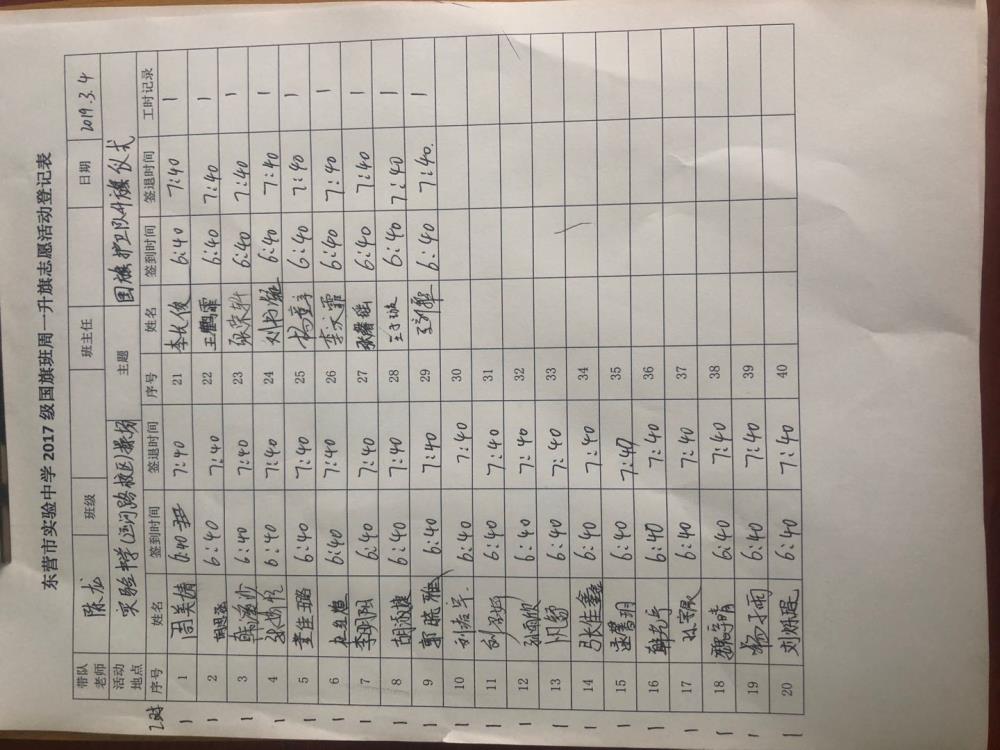 东营市实验中学2017级国旗班周一升旗志愿活动登记表
带队老师 陈龙 班级 班主任 日期 2019.3.4
活动地点 实验中学(运河路校区)操场 主题 国旗护卫队升旗仪式
工时 序号 姓名 签到时间 签退时间 序号 姓名 签到时间 签退时间 工时记录
1 1 周美婧 6:40 7:40 21 李长俊 6:40 7:40 1
1 2 胡思蕊 6:40 7:40 22 王鹤霏 6:40 7:40 1
1 3 韩 6:40 7:40 23 6:40 7:40 1
1 4 张 6:40 7:40 24 刘 6:40 7:40 1
1 5 李佳璐 6:40 7:40 25 杨 6:40 7:40 1
1 6 6:40 7:40 26 李文霏 6:40 7:40 1
1 7 李明 6:40 7:40 27 张馨瑶 6:40 7:40 1
1 8 胡淑婕 6:40 7:40 28 王子璇 6:40 7:40 1
1 9 郭晓雅 6:40 7:40 29 6:40 7:40. 1
1 10 刘 6:40 7:40 30
1 11 刘 6:40 7:40 31
1 12 孙雨欣 6:40 7:40 32
1 13 6:40 7:40 33
1 14 张佳鑫 6:40 7:40 34
1 15 6:40 7:40 35
1 16 韩 6:40 7:40 36
1 17 6:40 7:40 37
1 18 魏 6:40 7:40 38
1 19 杨 6:40 7:40 39
1 20 刘烁琨 6:40 7:40 40